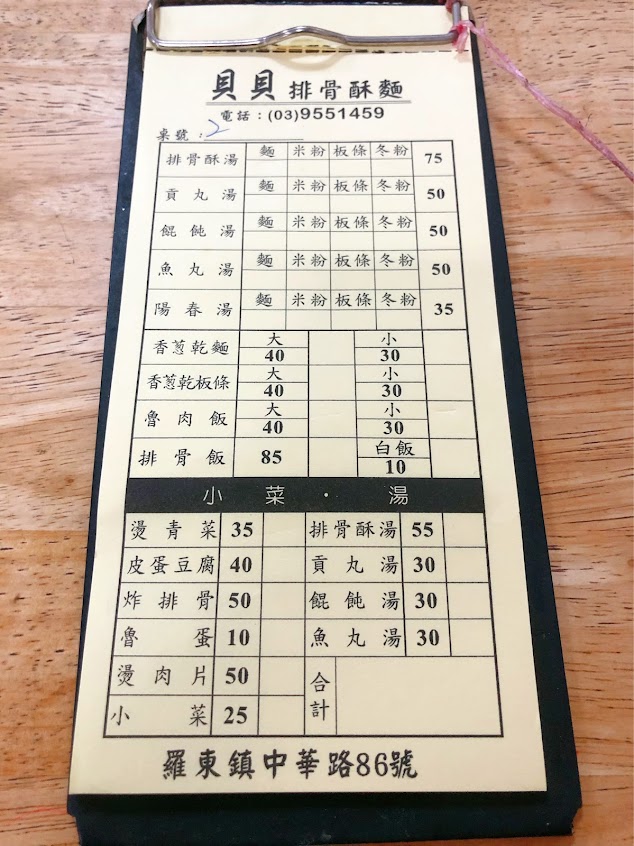 貝貝排骨酥麵
電話：(03)9551459
桌號：2
排骨酥湯 麵 米粉 板條 冬粉 75
貢丸湯 麵 米粉 板條 冬粉 50
餛飩湯 麵 米粉 板條 冬粉 50
魚丸湯 麵 米粉 板條 冬粉 50
陽春湯 麵 米粉 板條 冬粉 35
香蔥乾麵 大 40 小 30
香蔥乾板條 大 40 小 30
魯肉飯 大 40 小 30
排骨飯 85 白飯 10
小菜·湯
燙青菜 35 排骨酥湯 55
皮蛋豆腐 40 貢丸湯 30
炸排骨 50 餛飩湯 30
魯蛋 10 魚丸湯 30
燙肉片 50 合計
小菜 25
羅東鎮中華路86號